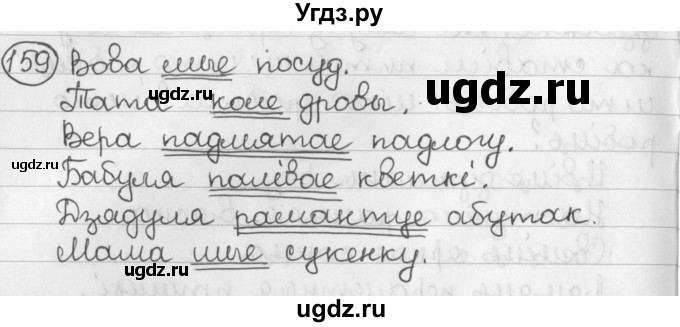 Угдз.ру
159 Вова мые посуд.
Тата коле дровы.
Вера падмятае падлогу.
Бабуля палівае кветкі.
Дзядуля рамантуе абутак.
Мама шые сукенку.
ugdz.ru
ugdz.ru
ugdz.ru
ugdz.ru
ugdz.ru
ugdz.ru
ugdz.ru